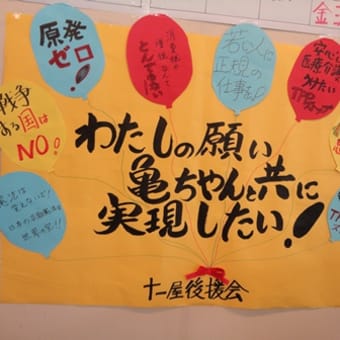 原発
ゼロ!
消費税の
増税なんて
とんでもない
若い人に
正規の
仕事を!
安心して
医療介護
うけたい
戦争
ある国は
NO。
わたしの願い
亀ちゃんと共に
実現したい!
憲法は
変えないで!
日本の平和憲法は
世界の宝!!
十一屋後援会